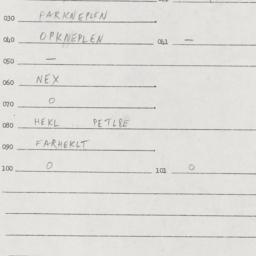 030 FARKNEPLEN
040 OPKNEPLEN 041 —
050 —
060 NEX
070 0
080 HEKL PETLBE
090 FARHEKLT
100 0 101 0